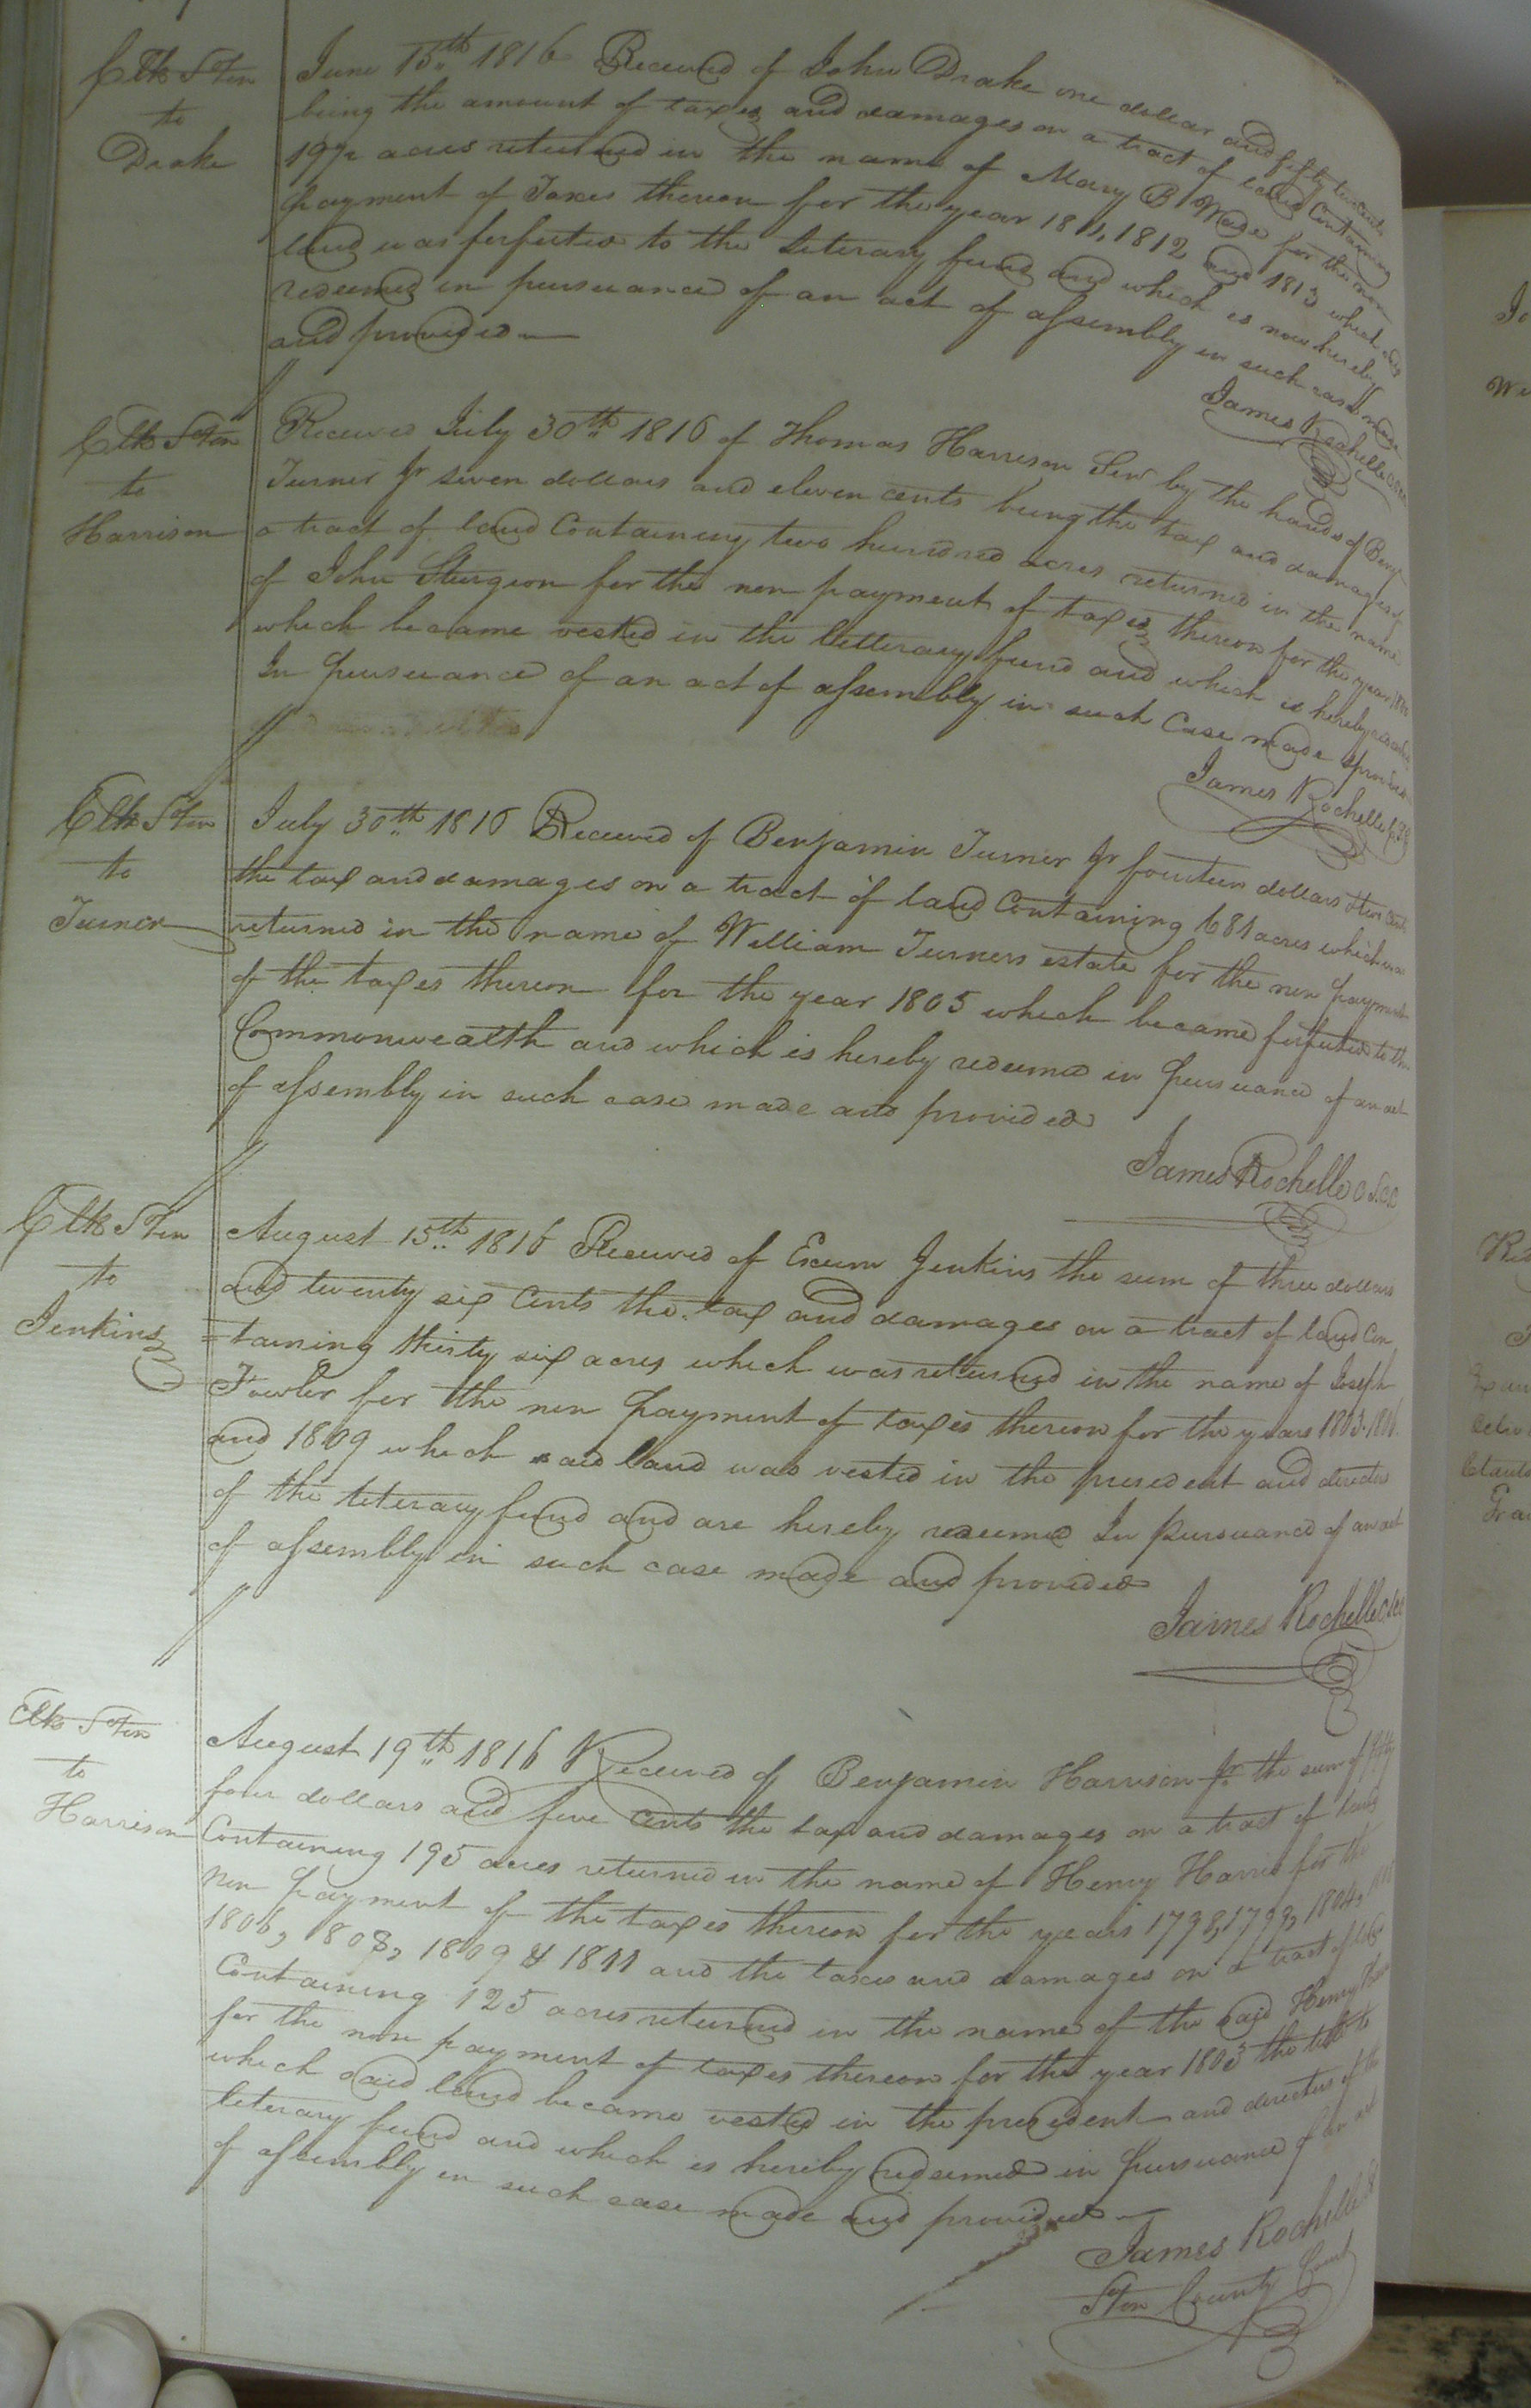 Clk S°ton
to
Drake
June 15th 1816 Received of John Drake one dollar and fifty cents
being the amount of taxes and damages on a tract of land Containing
197½ acres returned in the name of Mary B Wade for the non
payment of Taxes thereon for the year 1811, 1812 and 1813 which said
land was forfeited to the Literary fund and which is now hereby
redeemed in pursuance of an act of assembly in such case made
and provided
James Rochelle
Clk S°ton
to
Harrison
Received July 30th 1816 of Thomas Harrison Senr by the hands of Benj
Turner Jr seven dollars and eleven cents being the tax and damages of
a tract of land Containing two hundred acres returned in the name
of John Sturgeon for the non payment of taxes thereon for the year
which became vested in the litterary fund and which is hereby
In pursuance of an act of assembly in such Case made & provided
James Rochelle
Clk S°ton
to
Turner
July 30th 1816 Received of Benjamin Turner Jr fourteen dollars & ten cents
the tax and damages on a tract of land Containing 681 acres which was
returned in the name of William Turners estate for the non payment
of the taxes thereon for the year 1805 which became forfeited to the
Commonwealth and which is hereby redeemed in pursuance of an act
of assembly in such case made and provided
James Rochelle C S.C.C
Clk S°ton
to
Jenkins
August 15th 1816 Received of Exum Jenkins the sum of three dollars
and twenty six Cents the tax and damages on a tract of land Con
=taining thirty six acres which was returned in the name of Joseph
Fowler for the non payment of taxes thereon for the years 1803. 1806.
and 1809 which said land was vested in the president and directors
of the literary fund and are hereby redeemed In pursuance of an act
of assembly in such case made and provided
James Rochelle
Clk S°ton
to
Harrison
August 19th 1816 Received of Benjamin Harrison Jr the sum of fifty
four dollars and five Cents the tax and damages on a tract of land
Containing 195 acres returned in the name of Henry Harris for the
non payment of the taxes thereon for the years 1798, 1799, 1804,
1806, 1808, 1809 & 1811 and the taxes and damages on a tract of land
Containing 125 acres returned in the name of the said Henry
for the non payment of taxes thereon for the year 1803 the title to
which said land became vested in the president and directors of the
literary fund and which is hereby redeemed in pursuance of an act
of assembly in such case made and provided
James Rochelle
S°ton County Court